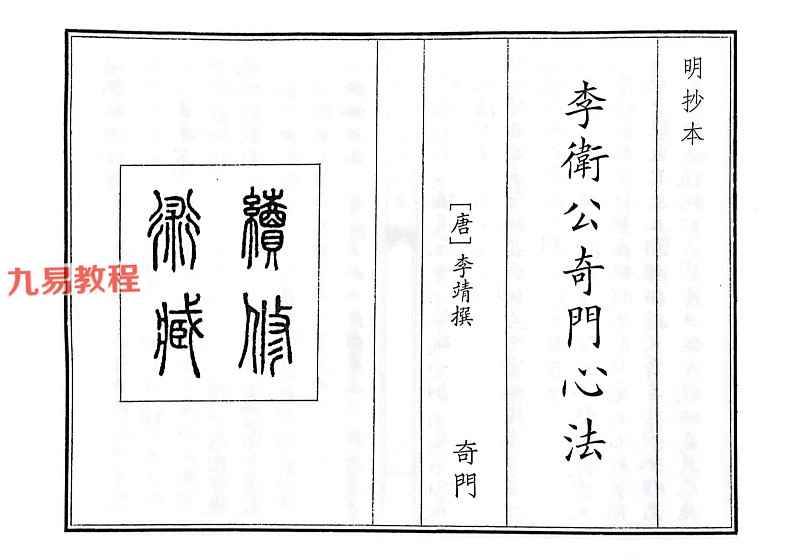 明抄本
李衛公奇門心法
[唐]李靖撰
奇門
續修
術藏
九易教程